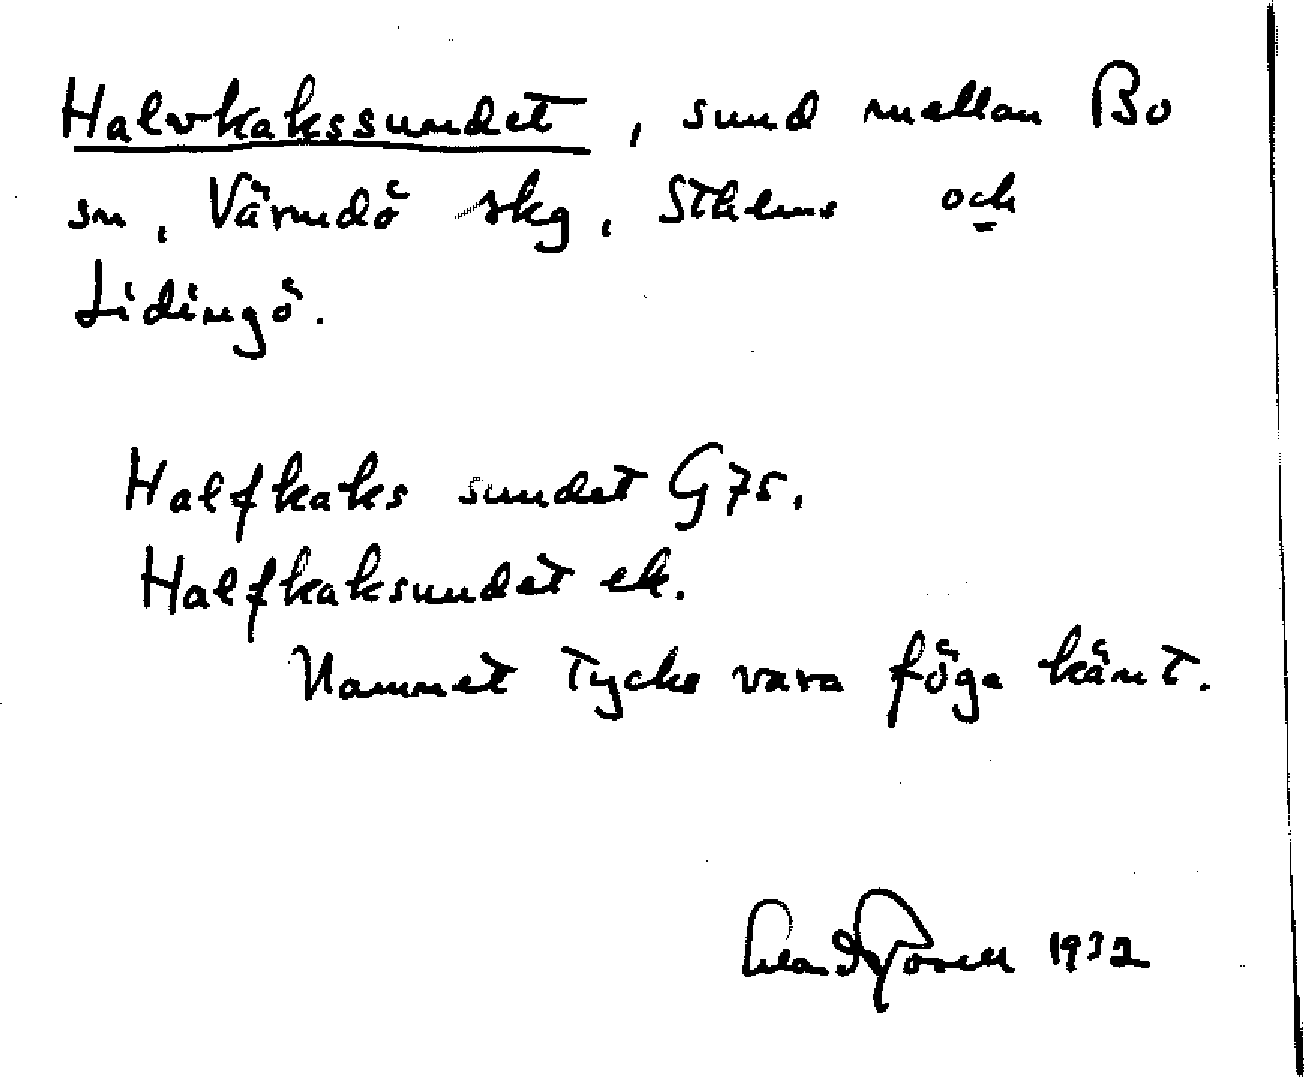 Halvkakssundet, sund mellan Bo
sn, Värmdö skg, Sthlms och
Lidingö.
Halfkaks sundet G75.
Halfkaksundet ek.
Namnet tycks vara föga känt.
1932